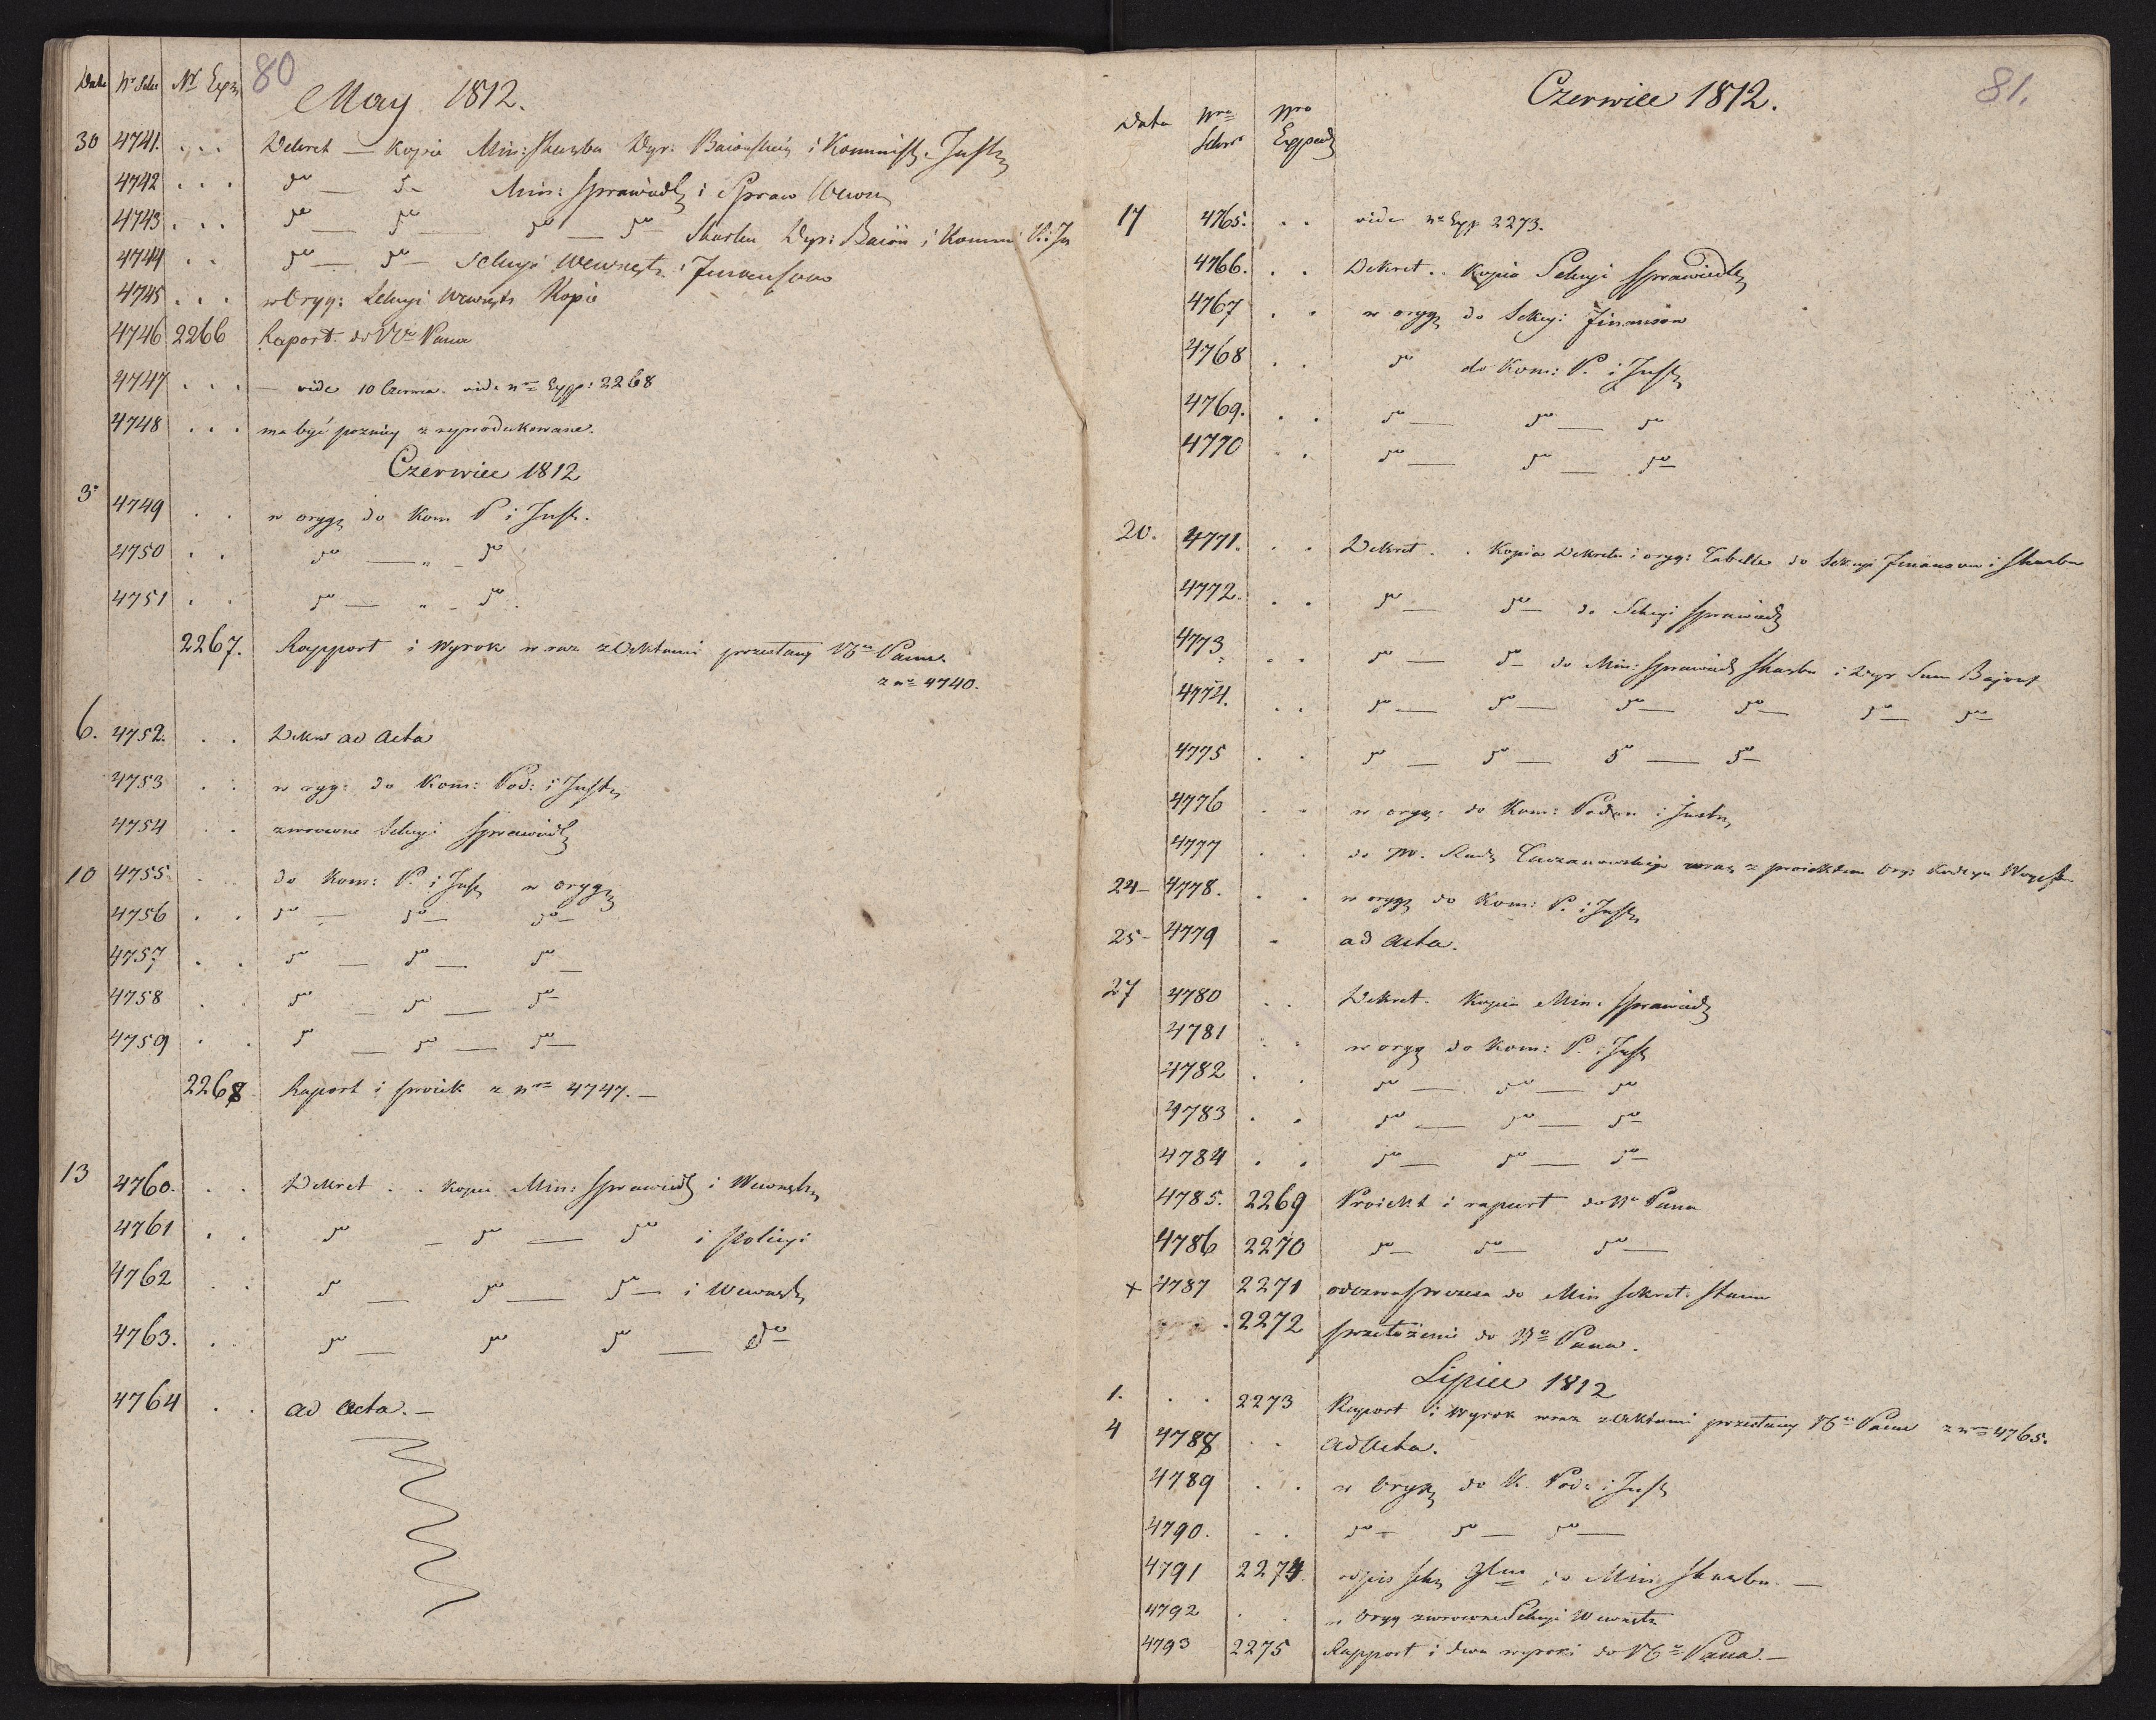 80
Data Nr Sekr Nr Exp.
May 1812.
30 4741. . . . Dekret — Kopia Min: Skarbu Dyr: i
4742 . . . do — do Min: Sprawiedl i Spraw Wewn
4743 . . . do — do — do — do Skarbu Dyr: i Kommi
4744 . . do — do — Sekcyi Wewnętr. i
4745 . . . w Oryg: Sekcyi Wewnętr Kopia
4746 2266 Raport do Pana
4747 . . . — vide 10 Czerwca. vide nro Exp: 2268
4748 . . . ma być
Czerwiec 1812
3 4749 . . w oryg do Kom P i Instr.
4750 . . do — " — do
4751 . . do — " — do
2267. Rapport i Wyrok wraz z Aktami przesłany Panu
z nro 4740.
6. 4752. . . ad Acta
4753 . . w oryg: do Kom: Pod: i Instr
4754 . . zwrocone Sekcyi Sprawiedl
10 4755 . . do Kom: P. i Instr w oryg
4756 . . do — do — do —
4757 . . do — do — do —
4758 . . do — do — do —
4759 . . do — do — do —
2268 Raport i z nro 4747. —
13 4760. . . Dekret . . kopia Min: Sprawiedl i Wewnętr
4761 . . do — do — do i Policyi
4762 . . do — do — do — i Wewnętr
4763. . . do — do do — do
4764 . . ad Acta. —
81.
Czerwiec 1812.
Data Nro Sekr Nro Expped
17 4765. . . vide nr Exp 2273.
4766. . . Dekret . . Kopia Sekcyi Sprawiedl
4767 . . w oryg do Sekcyi: Finansow
4768 . . do do Kom: P. i Instr
4769. . . do — do — do
4770 . . do — do — do
20. 4771. . . Dekret . . Kopia Dekretu i oryg: Tabella do Sekcyi Finansow i Skarbu
4772. . . do — do — do Sekcyi Sprawiedl
4773. . . do — do — do Min: Sprawiedl Skarbu i Dyr Sum Bajońs
4774. . . do — do — do — do — do — do
4775 . . do — do — do — do
4776 . . w oryg: do Kom: Podan i Instr
4777 . . do Radz wraz z
24 – 4778. . . w oryg do Kom: P. i Instr
25 – 4779 . ad Acta.
27 4780 . . Dekret. Kopia Min: Sprawiedl
4781 . . w oryg do Kom: P. i Instr
4782 . . do — do — do
4783 . . do — do — do
4784 . . do — do — do
4785. 2269 Proiekt i raport do Pana
4786 2270 do — do — do —
x 4787 2271 do Min Sekret. Stanu
. 2272 przełożenie do Pana.
Lipiec 1812
1. . . 2273 Raport i Wyrok wraz z Aktami przesłany Panu z nro 4765.
4 4788 . . ad Acta.
4789 . . w Oryg do K. Pod: i Instr
4790. . . do — do — do —
4791 2274. odpis do Min Skarbu. —
4792 . . w Oryg zwrocone Sekcyi Wewnętr
4793 2275 Rapport i dwa wyroki do Pana. —